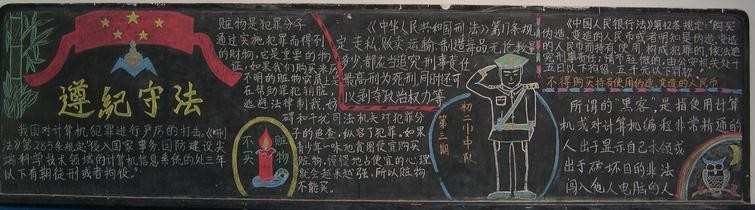 遵纪守法
我国对计算机犯罪进行严厉的打击。《刑
法》第285条规定"侵入国家事务、国防建设尖
端科学技术领域的计算机信息系统的处三年
以下有期徒刑或者拘役。"
赃物是犯罪分子
通过实施犯罪而得到
的财物,它是重要的物
证。如果我们购买来历
不明的赃物实质上
在帮助罪犯销脏,
逃避法律制裁,妨
碍和干扰司法机关对犯罪分
子的追查,纵容了犯罪。如果
青少年一味地贪图便宜购买
赃物,慢慢地占便宜的心理
就会越来越强,所以赃物
不能买。
不买
赃物
《中华人民共和国刑法》第17条规
定走私、贩卖、运输、制造毒品无论数量
多少,都应当追究刑事责任
最高刑为死刑,同时还可
以剥夺政治权力等
初二小中队
第三期
《中国人民银行法》第42条规定:"购买
伪造、变造的人民币或者明知是伪造、变造
的人民币而持有、使用,构成犯罪的,依法追
究刑事责任;情节轻微的,由公安机关处十
五日以下拘留
不得购买持有使用伪造、变造的人民币
所谓的"黑客",是指使用计算
机或对计算机编程非常精通的
人出于显示自己水平或
出于破坏目的非法
闯入他人电脑的人